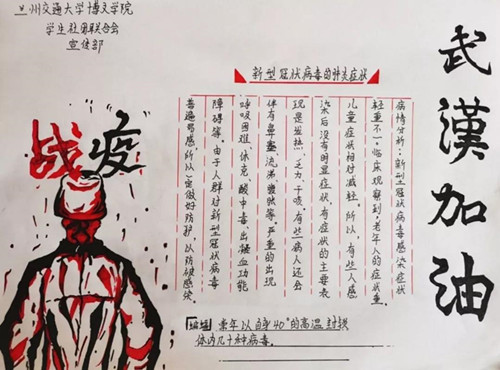 兰州交通大学博文学院
学生社团联合会
宣传部
战疫
新型冠状病毒的肺炎症状
病情分析：新型冠状病毒感染症状
轻重不一。临床观察到：老年人的症状重，
儿童症状相对减轻。所以，有些人感
染后没有明显症状，有症状的主要表
现是发热、乏力、干咳。有些病人还会
伴有鼻塞、流涕、等。严重的出现
呼吸困难、休克、酸中毒、出凝血功能
障碍等。由于人群对新型冠状病毒
普遍易感，所以一定做好防护，以防被感染。
武漢加油
「蝙蝠」常年以自身40°的高温封锁
体内几十种病毒。